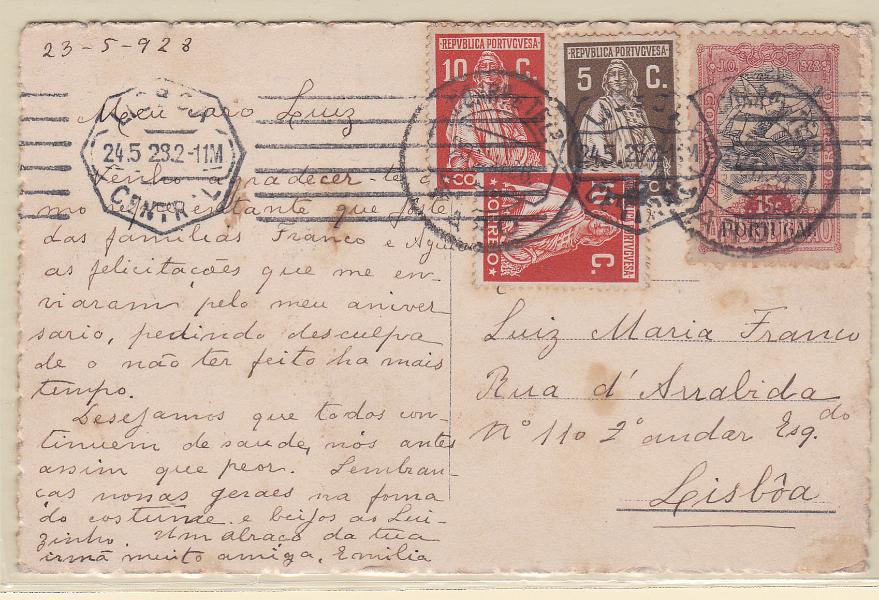 23-5-928
Meu caro Luiz
Tenho a gradecer-te
mo representante que
das familias Franco e
as felicitações que me en-
viaram pelo meu aniver-
sario, pedindo desculpa
de o não ter feito ha mais
tempo.
Desejamos que todos con-
tinuem de saude, nós antes
assim que peor. Lembran-
ças nossas geraes na forma
do costume e beijos ao Lui-
zinho. Um abraço da tua
irmã muito amiga, Emilia
24.5 28.2-11M
CENTRAL
REPVBLICA PORTVGVESA
10 C.
REPVBLICA PORTVGVESA
5 C.
24.5 28.2-11M
PORTVGVESA
C.
CORREIO
J.O. 1928
15c.
PORTUGAL
Luiz Maria Franco
Rua d'Arrabida
Nº 110 2º andar Esq.do
Lisbôa